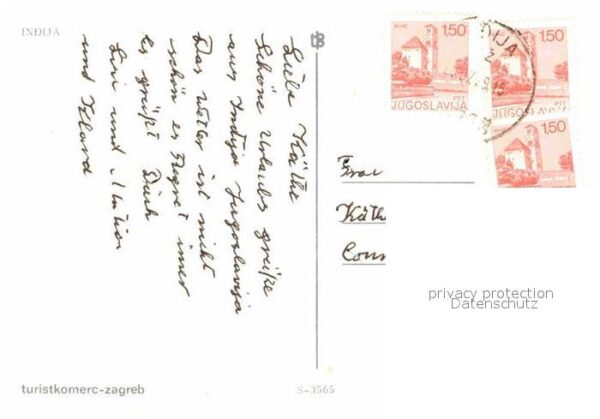 INĐIJA
Liebe Käthe
Schöne Urlaubs grüße
aus Inđija Jugoslavija
Das wetter ist nicht
schön es Regnet imer
Es grüßt Dich
und Mutter
und
Frau
Käth
1,50
JUGOSLAVIJA
1,50
JUGOSLAVIJA
1,50
privacy protection
Datenschutz
turistkomerc-zagreb
S-3565